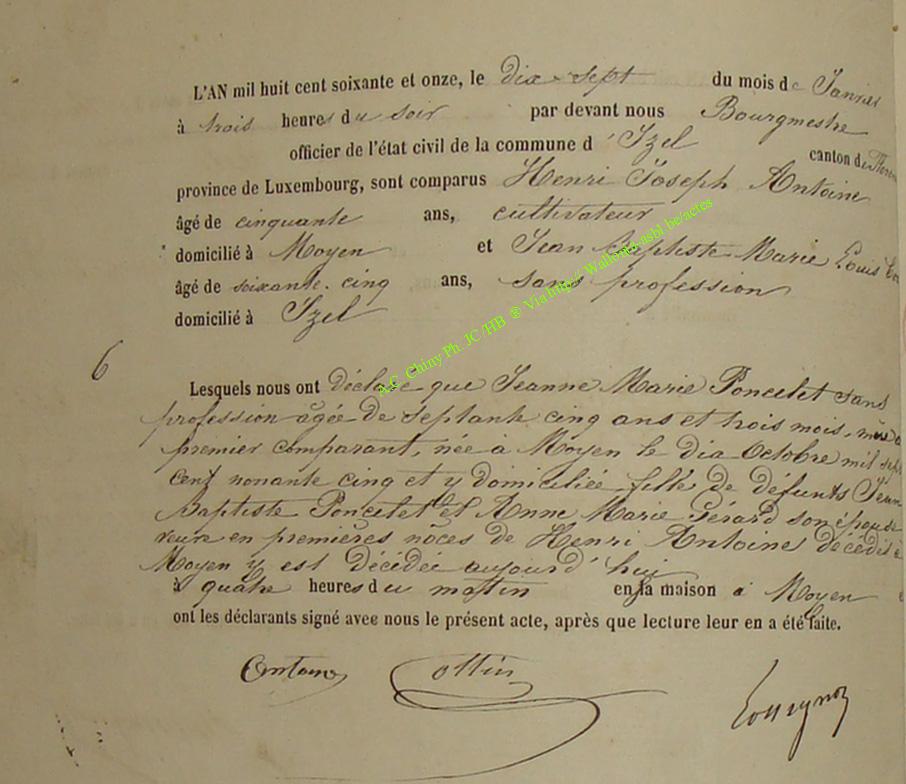 L'AN mil huit cent soixante et onze, le dix-sept du mois de Janvier
à trois heures du soir par devant nous Bourgmestre
officier de l'état civil de la commune d'Izel canton de
province de Luxembourg, sont comparus Henri Joseph Antoine
âgé de cinquante ans, cultivateur
domicilié à Moyen et Jean Baptiste Marie Louis
âgé de soixante-cinq ans, sans profession
domicilié à Izel
A.C. Chiny Ph. JC /HB ® Via http:// Wallonia-asbl.be/actes
6
Lesquels nous ont déclaré que Jeanne Marie Poncelet sans
profession âgée de septante cinq ans et trois mois, mère
premier comparant, née à Moyen le dix Octobre mil sept
cent nonante cinq et y domiciliée, fille de défunts Jean
Baptiste Poncelet et Anne Marie Gérard son épouse
veuve en premières nôces de Henri Antoine décédé à
Moyen y est décédée aujourd'hui
à quatre heures du matin en la maison à Moyen
ont les déclarants signé avec nous le présent acte, après que lecture leur en a été faite.
Antoine Ottin